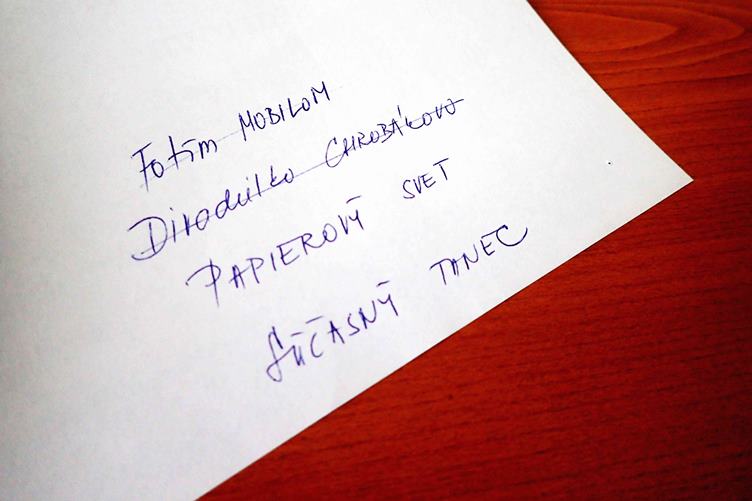 Fotím MOBILOM
Divadielko CHROBÁKOVO
PAPIEROVÝ SVET
SÚČASNÝ TANEC